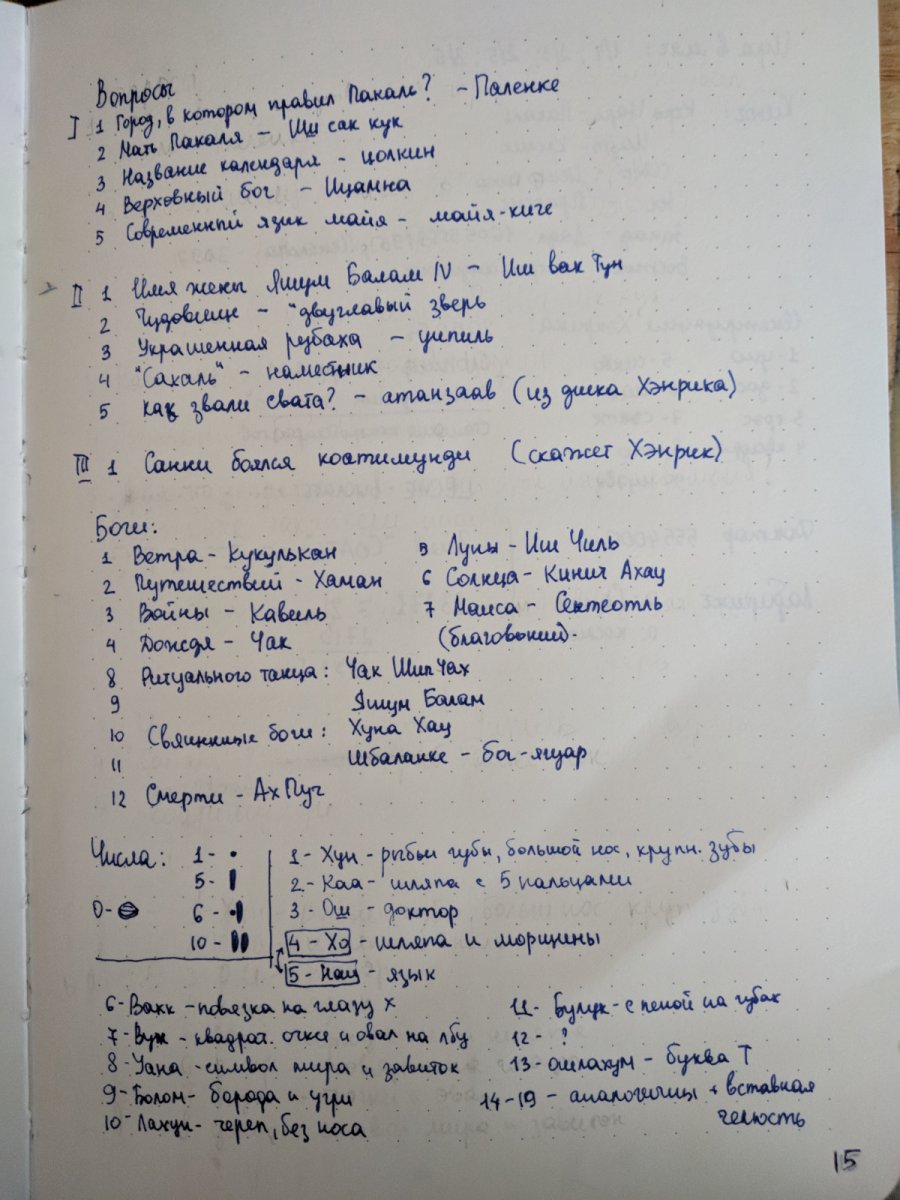 Вопросы
I 1 Город, в котором правил Пакаль? - Паленке
2 Мать Пакаля - Иш сак кук
3 Название календаря - цолкин
4 Верховный бог - Ицамна
5 Современный язик майя - майя-киче
II 1 Имя жены Яшум Балам IV - Иш вак Тун
2 Чудовище - "двуглавый зверь
3 Украшенная рубаха - уипиль
4 "Сахаль" - наместник
5 Как звали свата? - атанзаав (из диска Хэнрика)
III 1 Санки боялся коатимунди (скажет Хэнрик)
Боги:
1 Ветра - Кукулькан 5 Луны - Иш Чиль
2 Путешествий - Хаман 6 Солнца - Кинич Ахау
3 Войны - Кавиль 7 Маиса - Сентеотль
4 Дождя - Чак (благовоний)
8 Ритуального танца: Чак Шип Чах
9 Яшум Балам
10 Свянкные боги: Хуна Хау
11 Шбаланке - бог-ягуар
12 Смерти - Ах Пуч
Числа: 1- • 1- Хун - рыбьи губы, большой нос, крупн. зубы
5- 2- Каа - шляпа с 5 пальцами
0- 6- 3- Ош - доктор
10- 4 - Хо - шляпа и морщины
5 - Кан - язык
6- Вакк - повязка на глазу х 11- Булук - с пеной на губах
7- Вук - квадрат. очке и овал на лбу 12- ?
8- Уана - символ мира и завиток 13- ошлахун - буква Т
9- Болом - борода и угри 14-19 - аналогичны + вставная
10- Лахун - череп, без носа челюсть
15